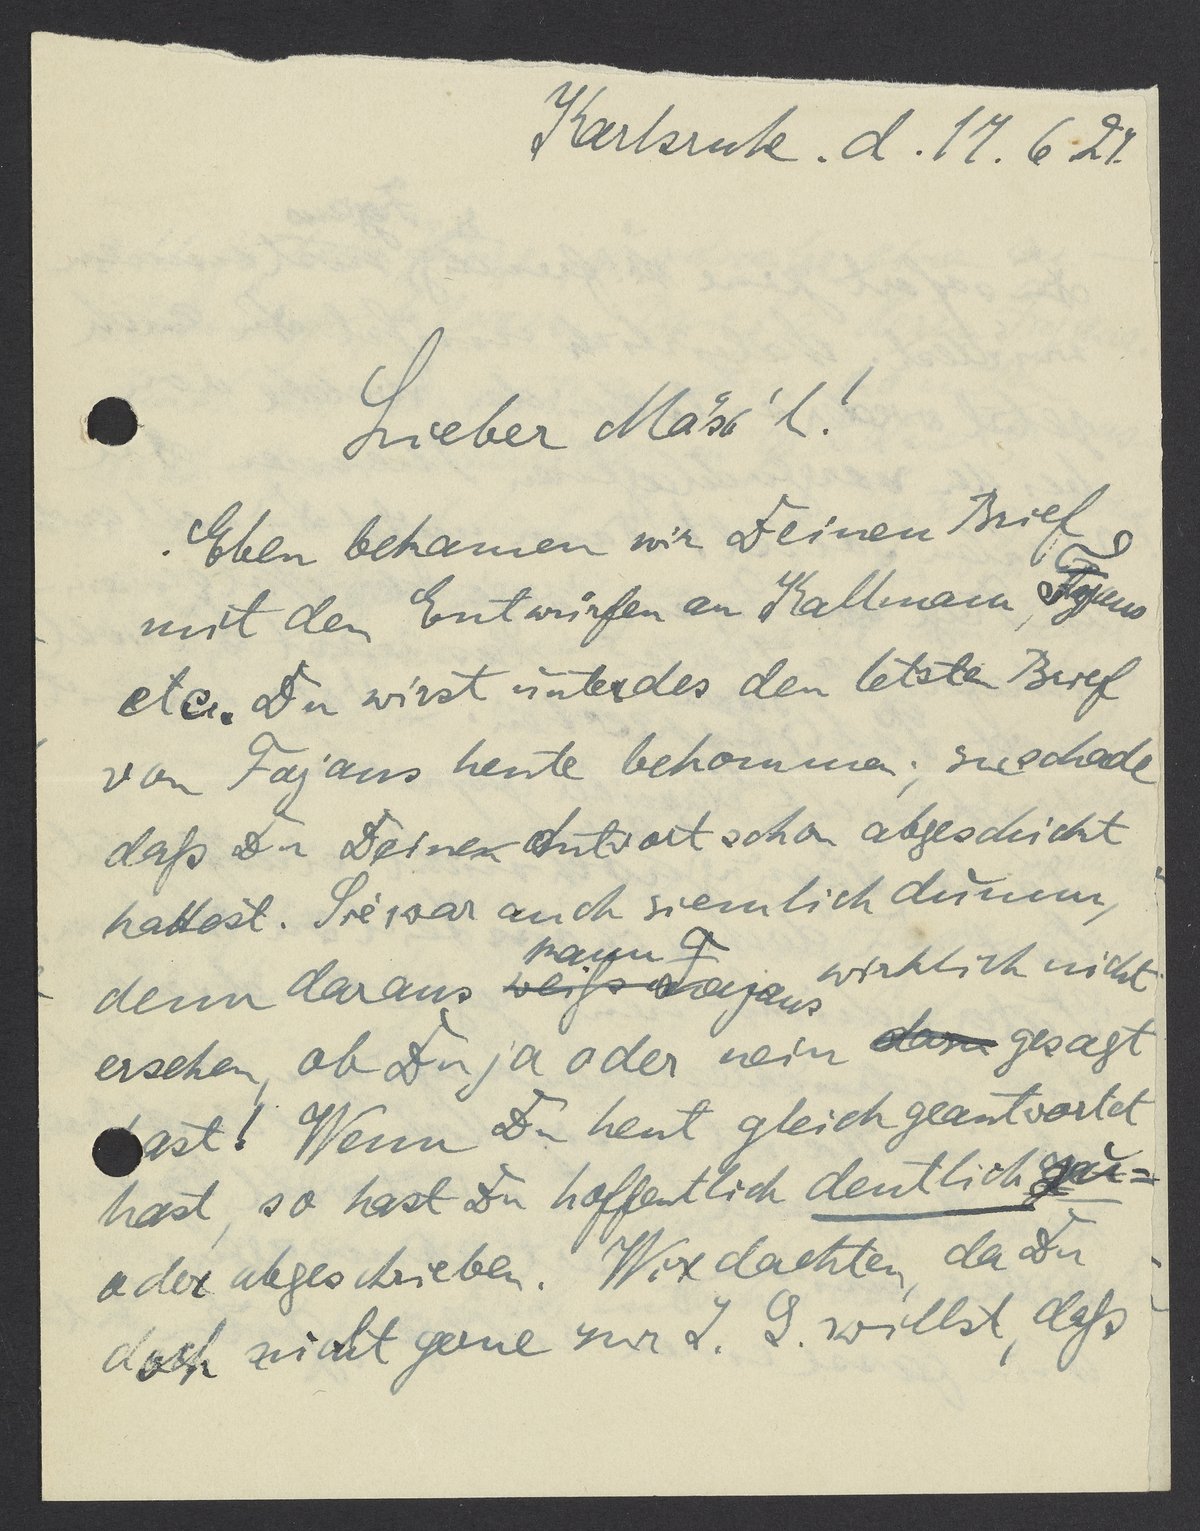 Karlsruhe. d. 17. 6 27.
Lieber Mäsch'l!
Eben bekamen wir Deinen Brief
mit den Entwürfen an Kallmann, Fajans
etc. Du wirst unterdes den letzten Brief
von Fajans heute bekommen; zu schade
daß Du Deine Antwort schon abgeschickt
hattest. Sie war auch ziemlich dumm,
denn daraus kann F wirklich nicht
ersehen, ob Du ja oder nein gesagt
hast! Wenn Du heut gleich geantwortet
hast, so hast Du hoffentlich deutlich zu=
oder abgeschrieben. Wir dachten, da Du
doch nicht gerne zur I. G. willst, daß